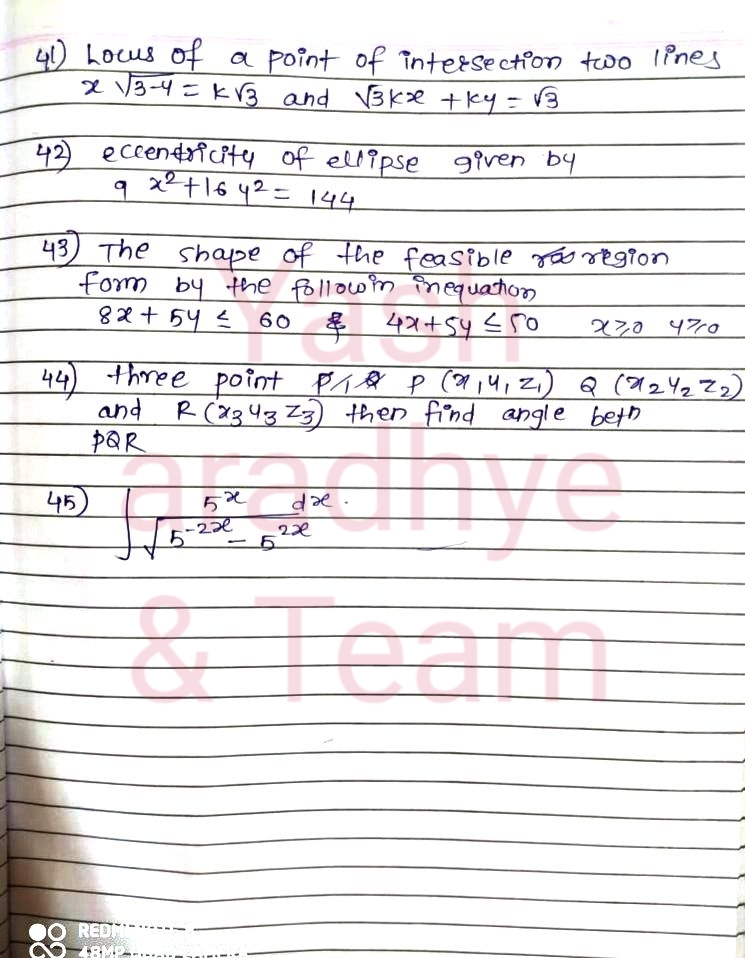 41) Locus of a point of intersection two lines
x √3-y = k√3 and √3kx + ky = √3
42) eccendricity of ellipse given by
9 x² + 16 y² = 144
43) The shape of the feasible region
form by the followin inequation
8x + 5y ≤ 60 & 4x + 5y ≤ 50 x ≥ 0 y ≥ 0
44) three point P (x₁ y₁ z₁) Q (x₂ y₂ z₂)
and R (x₃ y₃ z₃) then find angle betn
PQR
45) ∫ 5ˣ dx.
√5⁻²ˣ - 5²ˣ
Yash
aradhye
& Team
REDMI
48MP